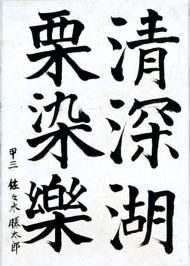 清深湖
栗染樂
甲三 佐々木勝太郎